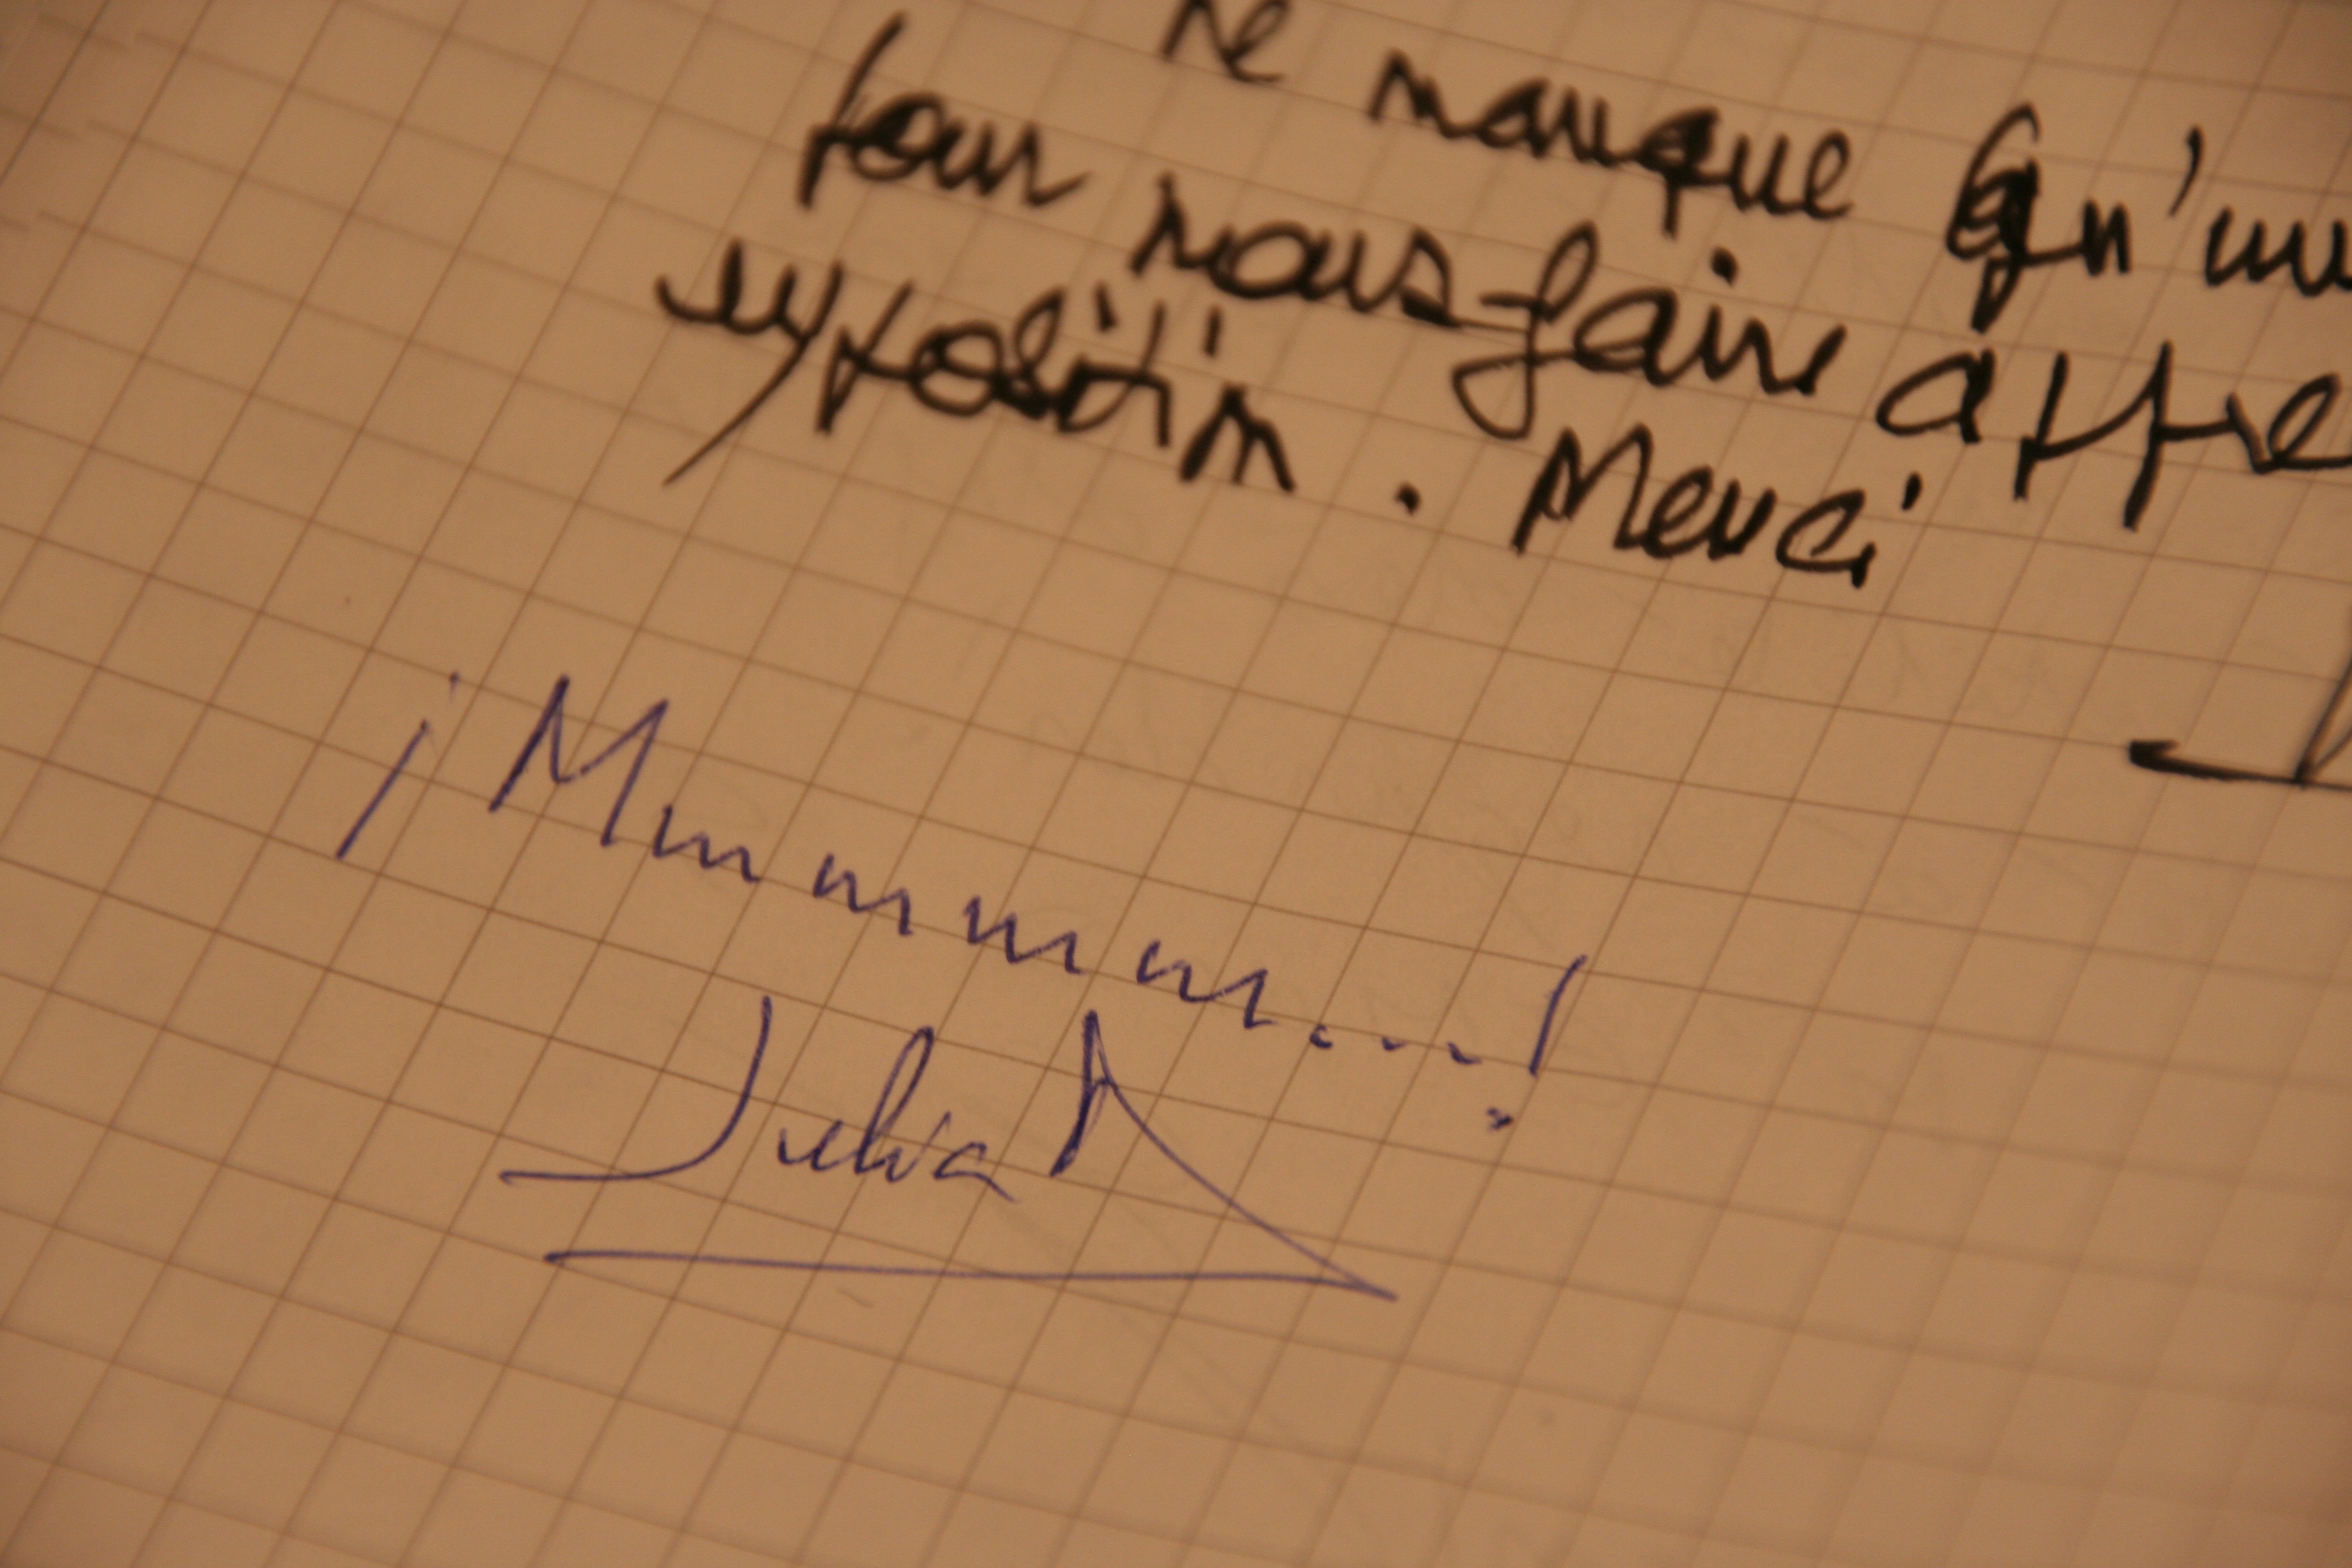 ne manque qu'un
pour nous faire
exposition. Merci
¡Mmmmm...!
Julia